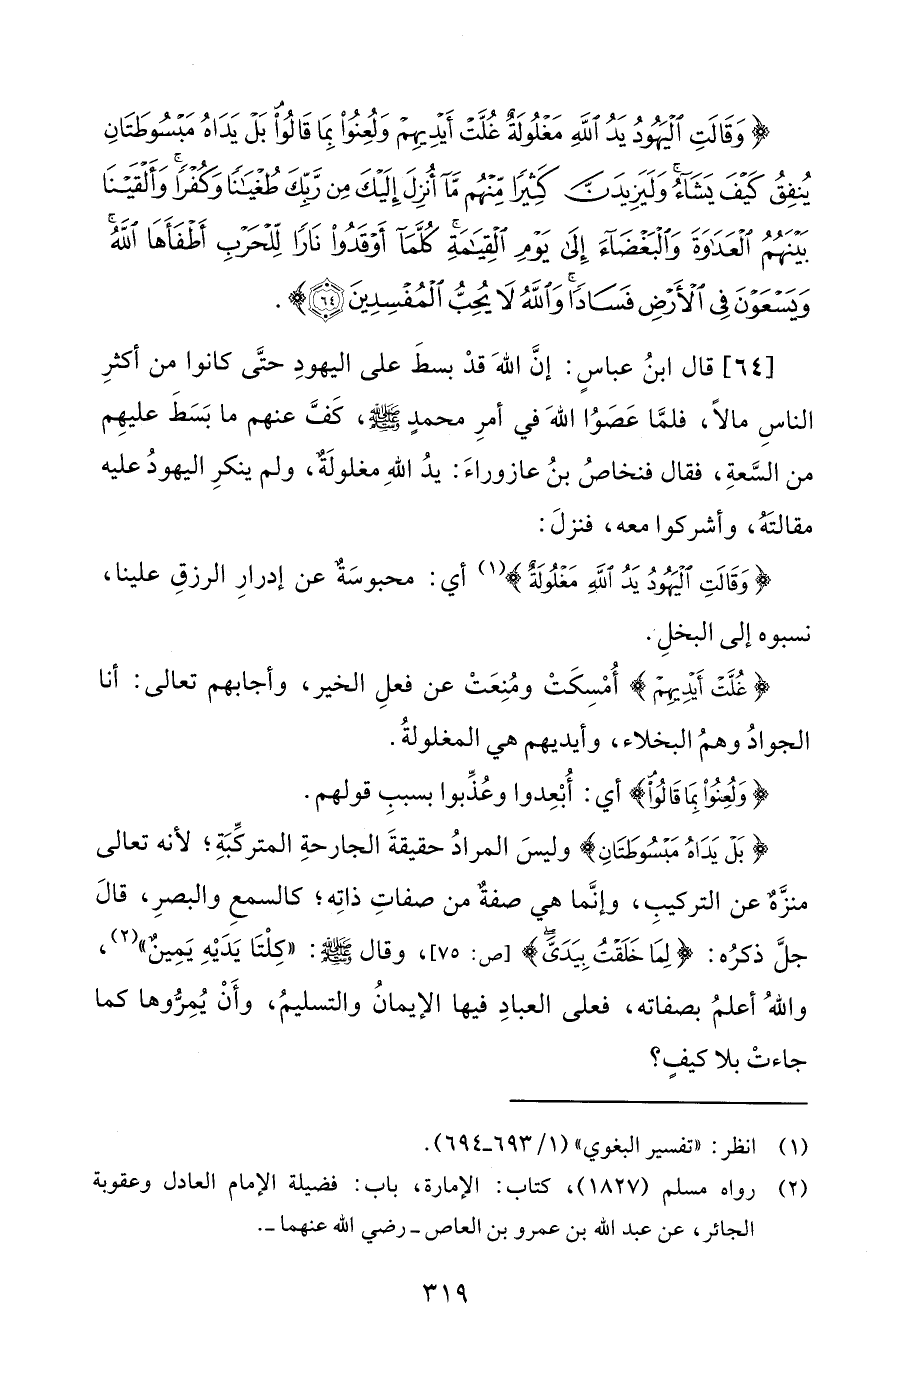 ﴿ وَقَالَتِ ٱلْيَهُودُ يَدُ ٱللَّهِ مَغْلُولَةٌ غُلَّتْ أَيْدِيهِمْ وَلُعِنُوا۟ بِمَا قَالُوا۟ بَلْ يَدَاهُ مَبْسُوطَتَانِ
يُنفِقُ كَيْفَ يَشَآءُ وَلَيَزِيدَنَّ كَثِيرًا مِّنْهُم مَّآ أُنزِلَ إِلَيْكَ مِن رَّبِّكَ طُغْيَٰنًا وَكُفْرًا وَأَلْقَيْنَا
بَيْنَهُمُ ٱلْعَدَٰوَةَ وَٱلْبَغْضَآءَ إِلَىٰ يَوْمِ ٱلْقِيَٰمَةِ كُلَّمَآ أَوْقَدُوا۟ نَارًا لِّلْحَرْبِ أَطْفَأَهَا ٱللَّهُ
وَيَسْعَوْنَ فِى ٱلْأَرْضِ فَسَادًا وَٱللَّهُ لَا يُحِبُّ ٱلْمُفْسِدِينَ ٦٤ ﴾ .
[٦٤] قال ابنُ عباسٍ: إنَّ اللهَ قدْ بسطَ على اليهودِ حتَّى كانوا من أكثرِ
الناسِ مالاً، فلمَّا عَصَوُا اللهَ في أمرِ محمدٍ ﷺ، كَفَّ عنهم ما بَسَطَ عليهِم
من السَّعةِ، فقال فنخاصُ بنُ عازوراءَ: يدُ اللهِ مغلولَةٌ، ولم ينكرِ اليهودُ عليه
مقالتَهُ، وأشركوا معه، فنزلَ:
﴿ وَقَالَتِ ٱلْيَهُودُ يَدُ ٱللَّهِ مَغْلُولَةٌ ﴾(١) أي: محبوسَةٌ عن إدرارِ الرزقِ علينا،
نسبوه إلى البخلِ.
﴿ غُلَّتْ أَيْدِيهِمْ ﴾ أُمْسِكَتْ ومُنِعَتْ عن فعلِ الخير، وأجابهم تعالى: أنا
الجوادُ وهمُ البخلاء، وأيديهم هي المغلولةُ.
﴿ وَلُعِنُوا۟ بِمَا قَالُوا۟ ﴾ أي: أُبْعِدوا وعُذِّبوا بسببِ قولهم.
﴿ بَلْ يَدَاهُ مَبْسُوطَتَانِ ﴾ وليسَ المرادُ حقيقةَ الجارحةِ المتركِّبَةِ؛ لأنه تعالى
منزَّهٌ عن التركيبِ، وإنَّما هي صفةٌ من صفاتِ ذاتِه؛ كالسمعِ والبصرِ، قالَ
جلَّ ذكرُه: ﴿ لِمَا خَلَقْتُ بِيَدَىَّ ﴾ [ص: ٧٥]، وقال ﷺ: «كِلْتَا يَدَيْهِ يَمِينٌ»(٢)،
واللهُ أعلمُ بصفاته، فعلى العبادِ فيها الإيمانُ والتسليمُ، وأَنْ يُمِرُّوها كما
جاءتْ بلا كيفٍ؟
(١) انظر: «تفسير البغوي» (١/ ٦٩٣ـ٦٩٤).
(٢) رواه مسلم (١٨٢٧)، كتاب: الإمارة، باب: فضيلة الإمام العادل وعقوبة
الجائر، عن عبد الله بن عمرو بن العاص ـ رضي الله عنهما ـ.
٣١٩